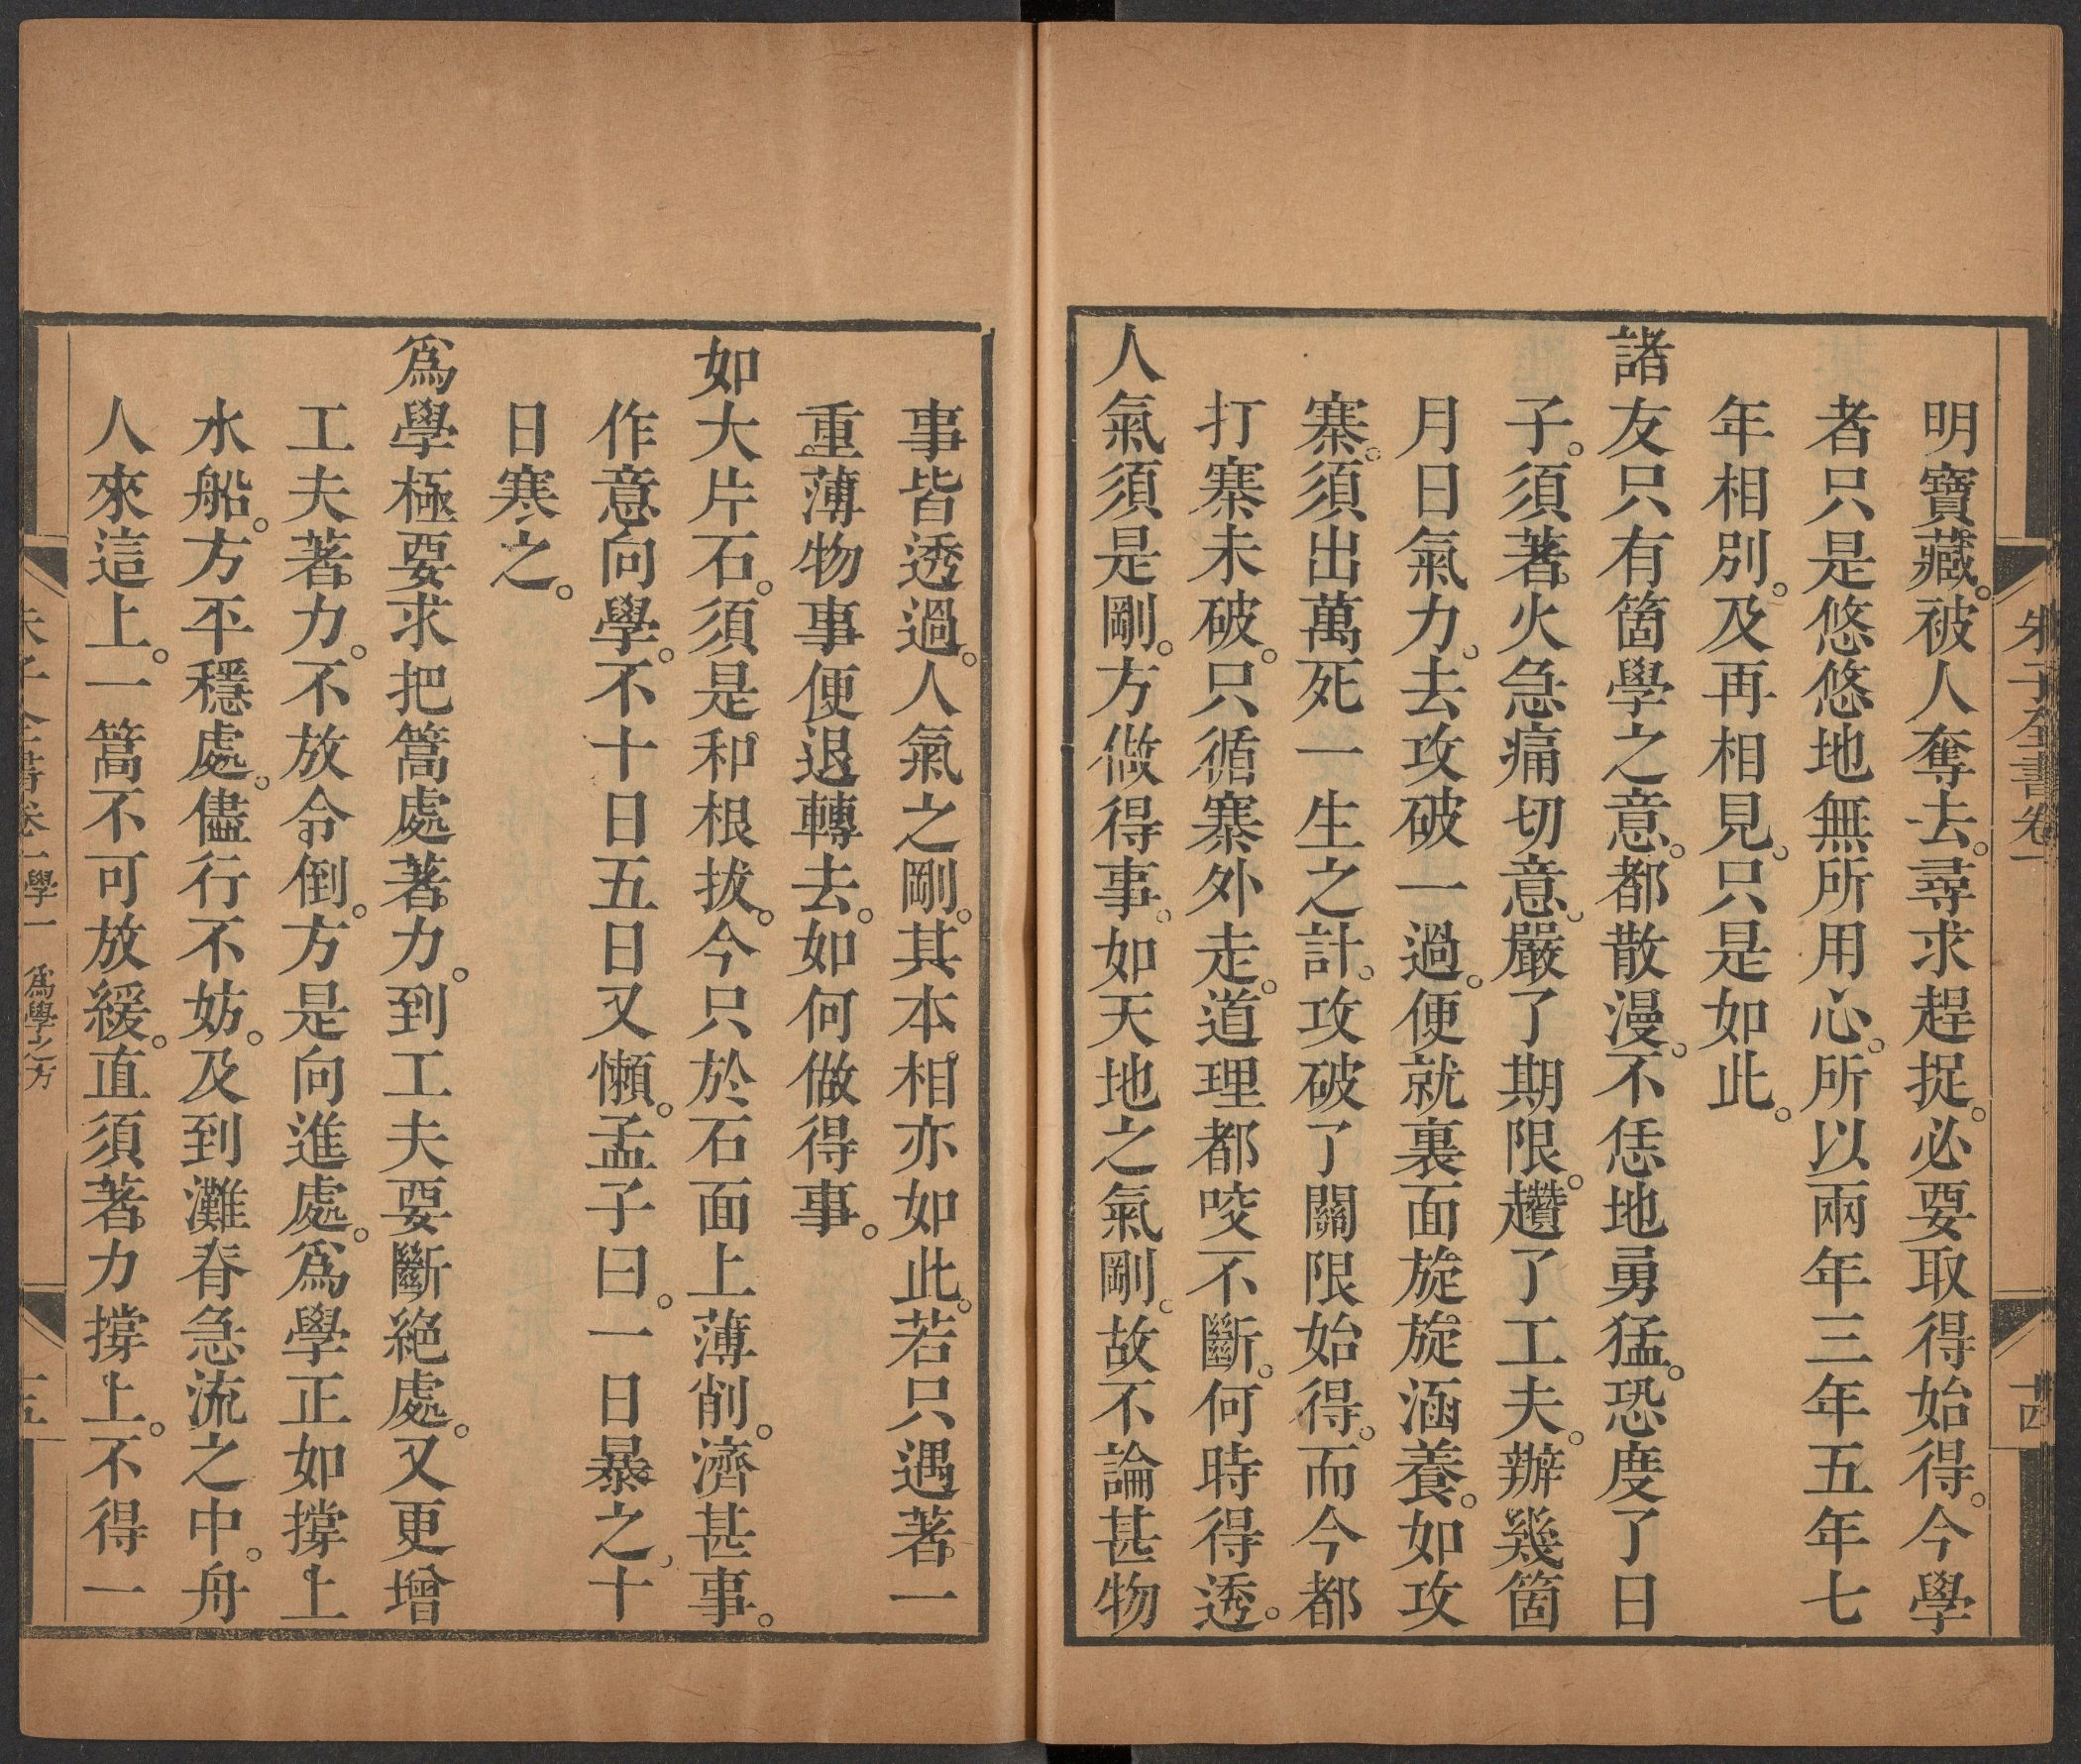 朱子全書卷一
十四
明寶藏。被人奪去。尋求趕捉。必要取得始得。今學
者只是悠悠地無所用心。所以兩年三年五年七
年相別。及再相見。只是如此。
諸友只有箇學之意。都散漫。不恁地勇猛。恐度了日
子。須著火急痛切意。嚴了期限。趲了工夫。辦幾箇
月日氣力。去攻破一過。便就裏面旋旋涵養。如攻
寨。須出萬死一生之計。攻破了關限始得。而今都
打寨未破。只循寨外走。道理都咬不斷。何時得透。
人氣須是剛。方做得事。如天地之氣剛。故不論甚物
事皆透過。人氣之剛。其本相亦如此。若只遇著一
重薄物事便退轉去。如何做得事。
如大片石。須是和根拔。今只於石面上薄削。濟甚事。
作意向學。不十日五日又懶。孟子曰。一日暴之、十
日寒之。
爲學極要求把篙處著力。到工夫要斷絕處。又更增
工夫著力。不放令倒。方是向進處。爲學正如撐上
水船。方平穩處。儘行不妨。及到灘脊急流之中。舟
人來這上。一篙不可放緩。直須著力撐上。不得一
朱子全書卷一 學一 爲學之方
十五